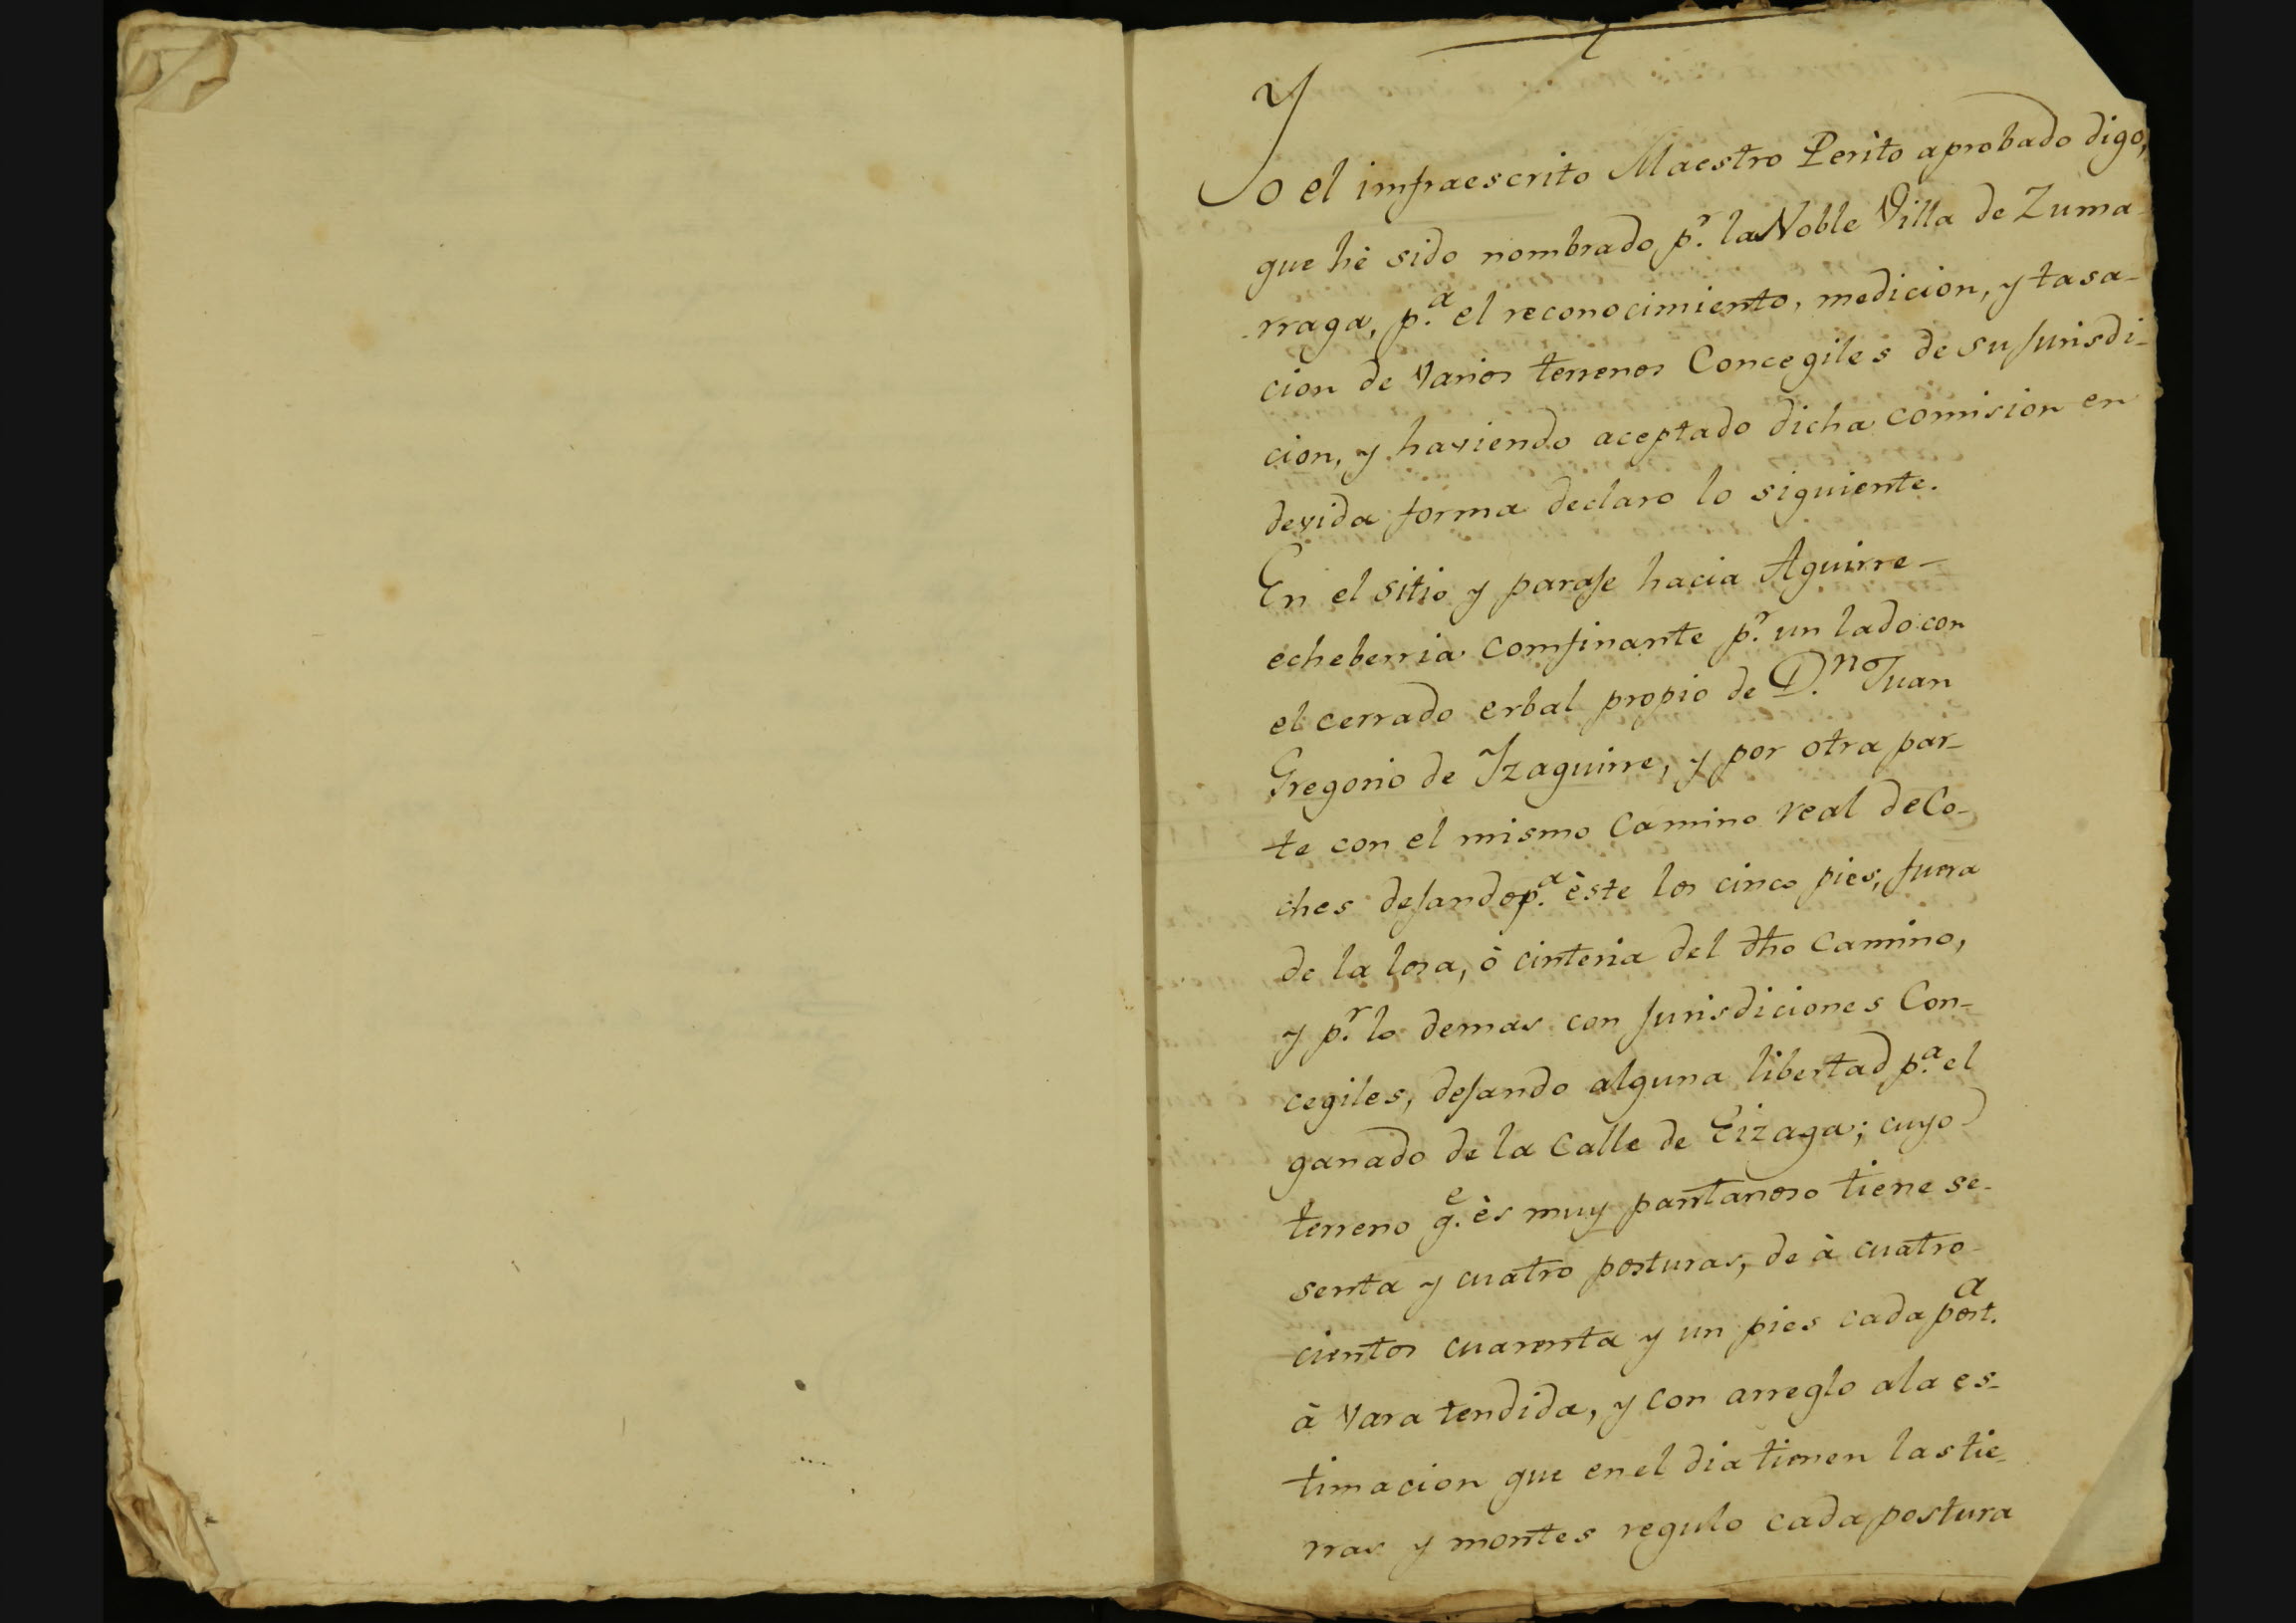 Yo el imfraescrito Maestro Perito aprobado digo,
que hè sido nombrado p.r la Noble Villa de Zuma-
-rraga, p.a el reconocimiento, medicion, y tasa-
cion de varios terrenos Concegiles de su Jurisdi-
cion, y haviendo aceptado dicha comision en
devida forma declaro lo siguiente.
En el sitio y paraje hacia Aguirre-
echeberria comfinante p.r un lado con
el cerrado erbal propio de D.n Juan
Gregorio de Yzaguirre, y por otra par-
te con el mismo Camino real de Co-
ches dejando p.a èste los cinco pies, fuera
de la losa, ò cinteria del dho camino,
y p.r lo demas con Jurisdiciones Con-
cegiles, dejando alguna libertad p.a el
ganado de la Calle de Eizaga; cuyo
terreno q.e ès muy pantanoso tiene se-
senta y cuatro posturas, de à cuatro-
cientos cuarenta y un pies cada post.a
à vara tendida, y con arreglo a la es-
timacion que en el dia tienen las tie-
rras y montes regulo cada postura